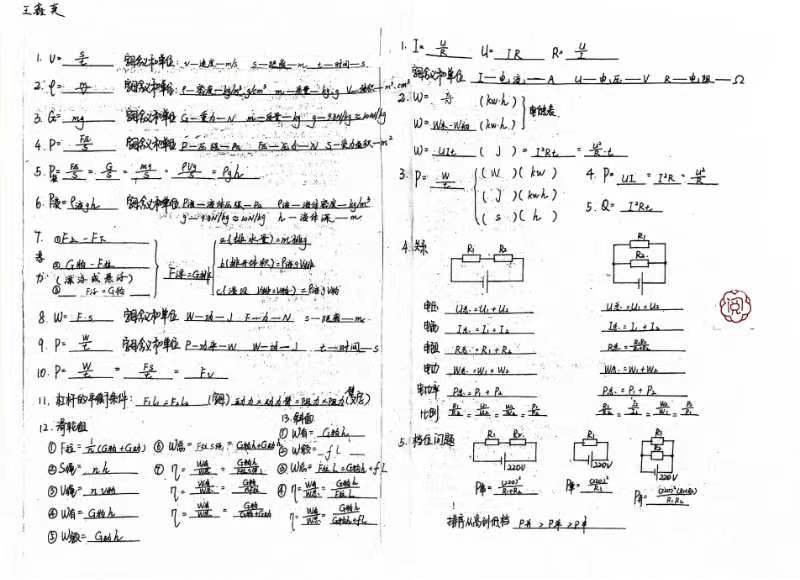 1. V= s/t 字母含义和单位: v—速度—m/s s—距离—m t—时间—s
2. ρ= m/v 字母含义和单位: ρ—密度—kg/m³,g/cm³ m—质量—kg,g V—体积—m³,cm³
3. G= mg 字母含义和单位 G—重力—N m—质量—kg g—9.8N/kg≈10N/kg
4. P= F压/S 字母含义和单位 P—压强—Pa F压—压力—N S—受力面积—m²
5. P固= F压/S = G/S = mg/S = ρVg/S = ρgh
6. P液= ρ液gh 字母含义和单位 P液—液体压强—Pa ρ液—液体密度—kg/m³
g—9.8N/kg≈10N/kg h—液体深—m
7. 浮力
① F上-F下
② G物-F拉
(漂浮或悬浮)
③ F浮=G物
F浮=G排
a(排水量)=m排g
b(排开体积)=ρ液gV排
c(浸没 V排=V物)=ρ液gV物
8. W= F·S 字母含义和单位 W—功—J F—力—N s—距离—m
9. P= W/t 字母含义和单位 P—功率—W W—功—J t—时间—s
10. P= W/t = Fs/t = Fv
11. 杠杆的平衡条件: F₁L₁=F₂L₂ 动力×动力臂=阻力×阻力臂
12. 滑轮组
① F拉= 1/n(G物+G动)
② S绳= nh
③ V绳= nV物
④ W有= G物h
⑤ W额= G动h
⑥ W总= F拉S绳 = G物h+G动h
⑦ η= W有/W总 =
η= W有/W总 =
η= W有/W总 = G物/G物+G动
13. 斜面
① W有= G物h
② W额= fL
③ W总= F拉L=G物h+fL
④ η= W有/W总 = G物h/F拉L
η= W有/W总 = G物h/G物h+fL
1. I= U/R U= IR R= U/I
字母含义和单位 I—电流—A U—电压—V R—电阻—Ω
2. W= (kw·h)
W= W末-W初 (kw·h)
电能表
W= UIt (J) = I²Rt = U²/R·t
3. P= W/t (W)(kw)
(J)(kw·h)
(s)(h)
4. P= UI = I²R = U²/R
5. Q= I²Rt
4. 关系
R₁ R₂
R₁
R₂
电压 U总=U₁+U₂ U总=U₁=U₂
电流 I总=I₁=I₂ I总=I₁+I₂
电阻 R总=R₁+R₂ R总=
电功 W总=W₁+W₂ W总=W₁+W₂
电功率 P总=P₁+P₂ P总=P₁+P₂
比例 R₁/R₂ = U₁/U₂ = W₁/W₂ = P₁/P₂
5. 档位问题
R₁ R₂ 220V
R₁ 220V
R₁ R₂ 220V
P串= (220)²/R₁+R₂
P单= (220)²/R₁
排序从高到低档 P并 > P单 > P串
阅